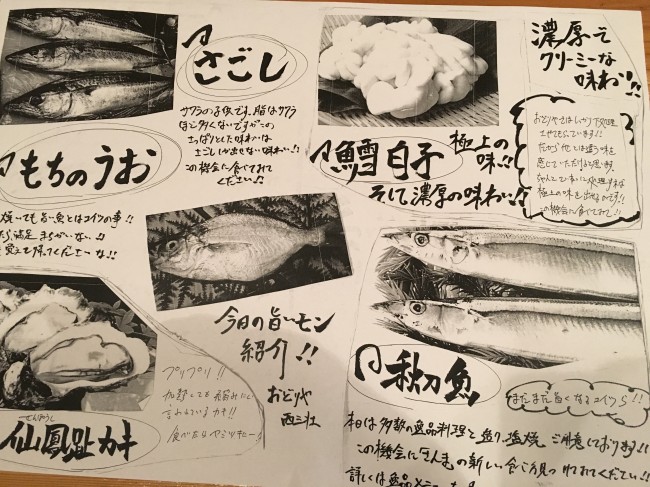 さごし
サワラの子供です。脂はサワラ
ほど多くないですがこの
さっぱりとした味わいは
さごししか出せない味わい!!
この機会に食べてみて
ください♪♪
濃厚で
クリーミーな
味わい!!
おどりやではしっかり下処理
させてもらっています!!
だから他とは違う味を
感じていただけると思います。
ちゃんとていねいに処理すれば
極上の味を出せるのです!!
この機会に食べてみて!!
鱈白子
極上の
味!!
そして濃厚の味わい!!
もちのうお
焼いても旨い魚とはコイツの事!!
まちがいない!!
仙鳳趾カキ
せんぽうし
プリプリ!!
加熱しても縮みにくい
言われているカキ!!
今日の旨いモン
紹介!!
おどりや
西三荘
秋刀魚
まだまだ旨くなるコイツら!!
本日は多数の逸品料理と造り、塩焼 ご用意しております!!
この機会にさんまの新しい食べ方見つけてみてください!!
詳しくは逸品メニュー